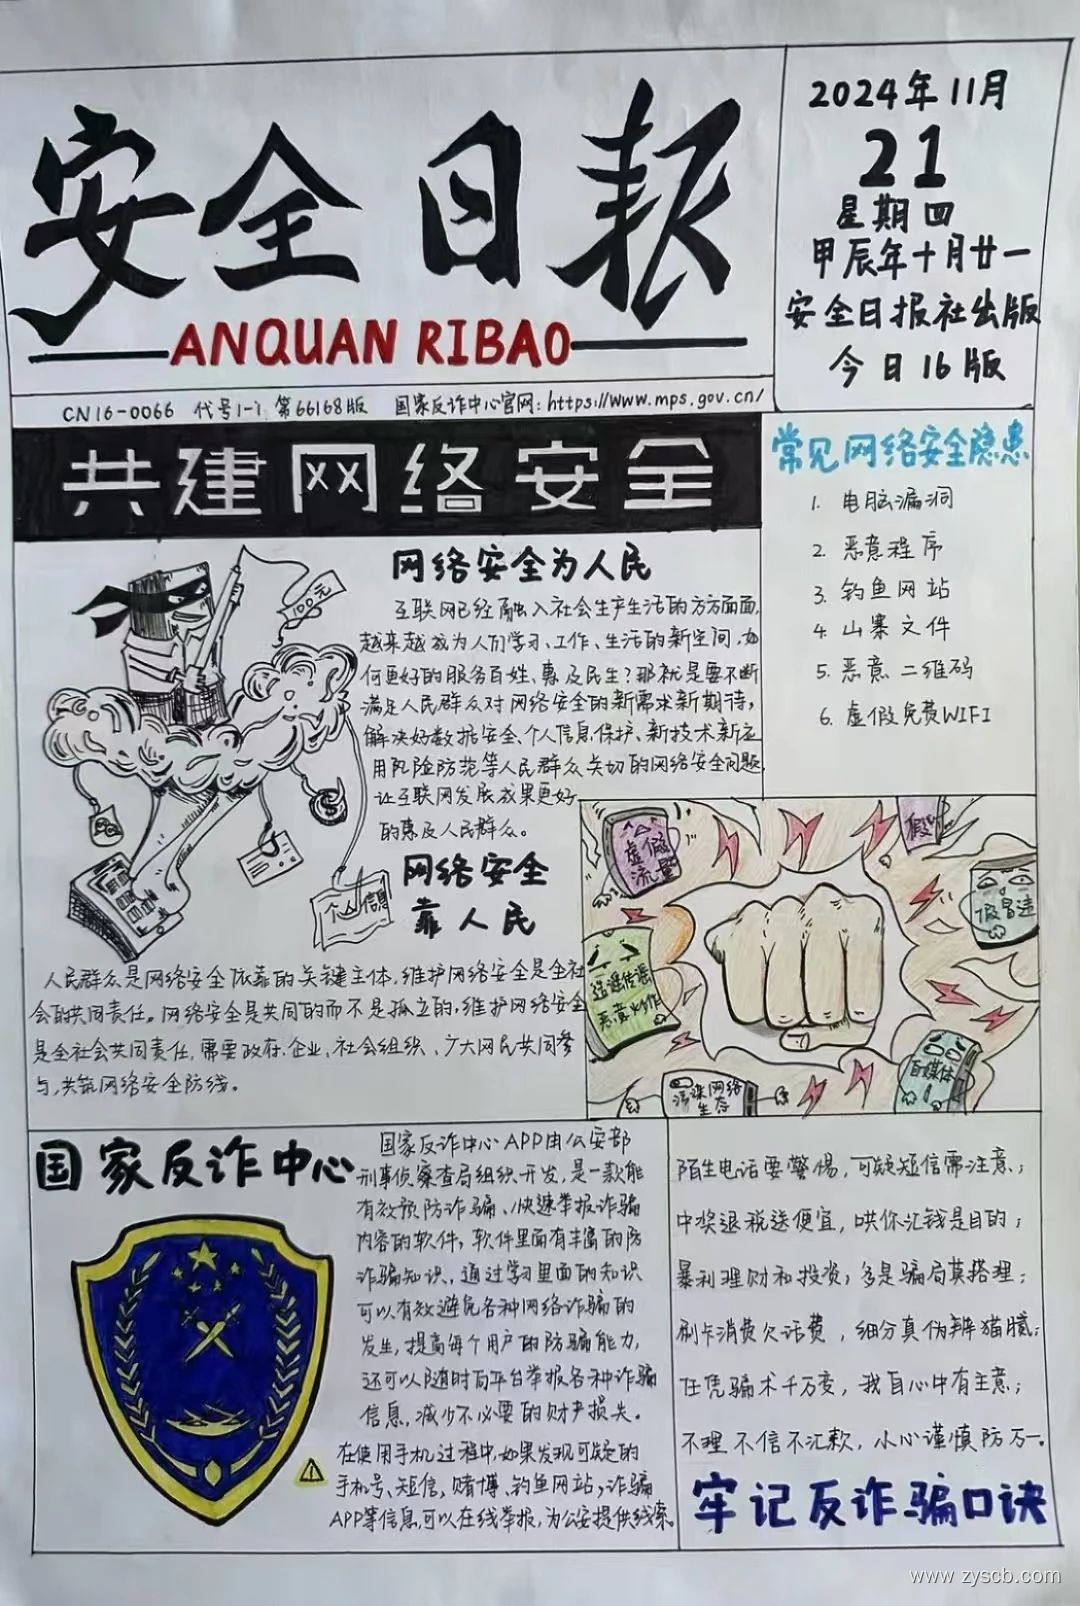 安全日报
ANQUAN RIBAO
2024年11月
21
星期四
甲辰年十月廿一
安全日报社出版
今日16版
CN16-0066 代号1-1 第66168版 国家反诈中心官网:https://www.mps.gov.cn/
共建网络安全
常见网络安全隐患
1. 电脑漏洞
2. 恶意程序
3. 钓鱼网站
4. 山寨文件
5. 恶意二维码
6. 虚假免费WIFI
100元
个人信息
网络安全为人民
互联网已经融入社会生产生活的方方面面,
越来越成为人们学习、工作、生活的新空间,如
何更好的服务百姓、惠及民生?那就是要不断
满足人民群众对网络安全的新需求新期待,
解决好数据安全、个人信息保护、新技术新应
用风险防范等人民群众关切的网络安全问题,
让互联网发展成果更好
的惠及人民群众。
网络安全
靠人民
人民群众是网络安全依靠的关键主体,维护网络安全是全社
会的共同责任。网络安全是共同的而不是孤立的,维护网络安全
是全社会共同责任,需要政府、企业、社会组织、广大网民共同参
与,共筑网络安全防线。
虚假
流量
假冒
造谣传谣
恶意炒作
自媒体
网络
生态
国家反诈中心
国家反诈中心APP由公安部
刑事侦察查局组织开发,是一款能
有效预防诈骗、快速举报诈骗
内容的软件,软件里面有丰富的防
诈骗知识,通过学习里面的知识
可以有效避免各种网络诈骗的
发生,提高每个用户的防骗能力,
还可以随时向平台举报各种诈骗
信息,减少不必要的财产损失。
在使用手机过程中,如果发现可疑的
手机号、短信,赌博、钓鱼网站,诈骗
APP等信息,可以在线举报,为公安提供线索。
陌生电话要警惕,可疑短信需注意;
中奖退税送便宜,哄你汇钱是目的;
暴利理财和投资,多是骗局莫搭理;
刷卡消费欠话费,细分真伪辨猫腻;
任凭骗术千万变,我自心中有主意;
不理不信不汇款,小心谨慎防万一。
牢记反诈骗口诀
www.zyscb.com